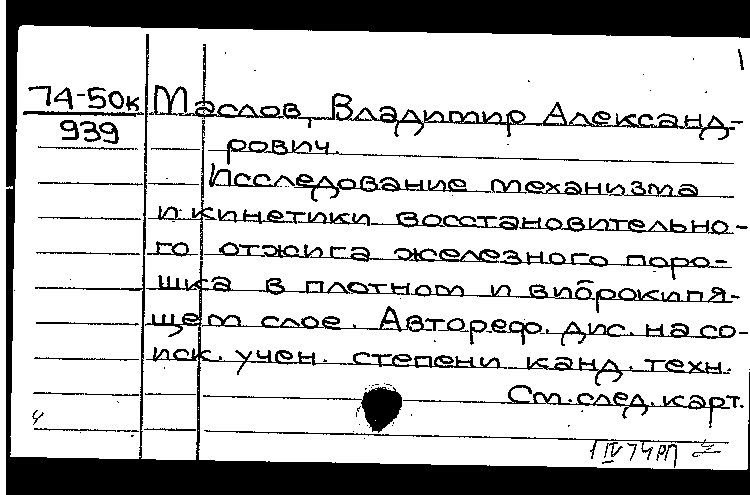 1
74-50к Маслов, Владимир Александ-
939
рович.
Исследование механизма
и кинетики восстановительно-
го отжига железного поро-
шка в плотном и виброкипя-
щем слое. Автореф. дис. на со-
иск. учен. степени канд. техн.
См. след. карт.
4
1 IV 74 РП